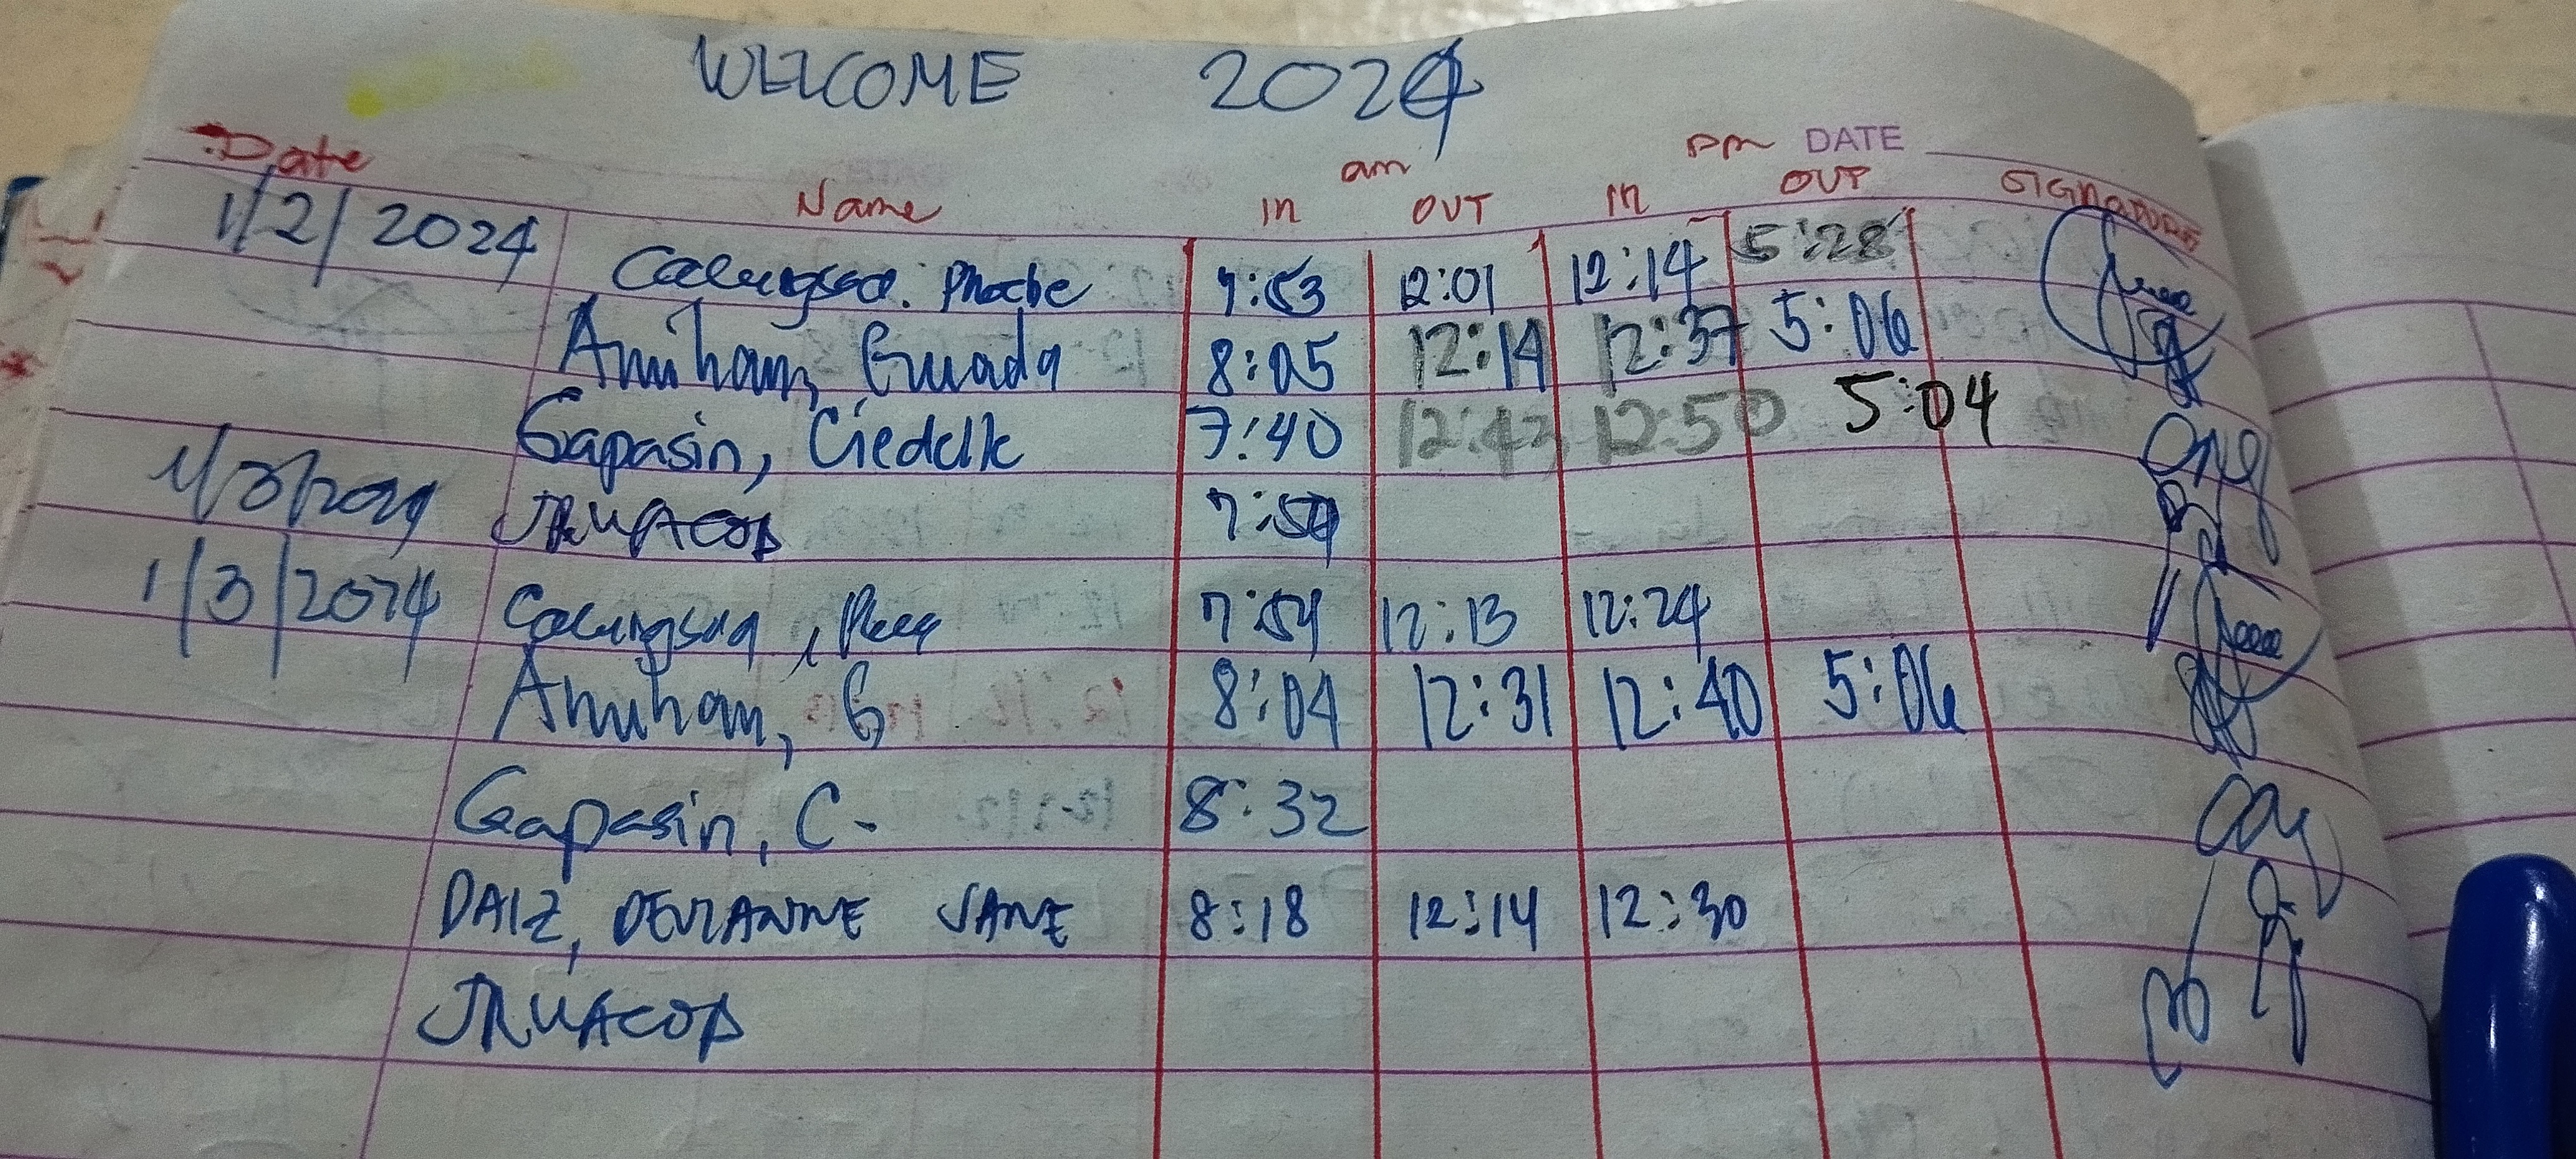 WELCOME 2024
Date Name am pm DATE
in OUT in OUT SIGNATURE
1/2/2024 Calungsod. Phoebe 7:53 12:01 12:14 5:28
Amihan, Guada 8:05 12:14 12:37 5:06
Gapasin, Ciedelle 7:40 12:43 12:50 5:04
1/3/2024 7:59
1/3/2024 Calungsod, 7:54 12:13 12:24
Amihan, G 8:04 12:31 12:40 5:06
Gapasin, C- 8:32
DAIZ, JANE 8:18 12:14 12:30